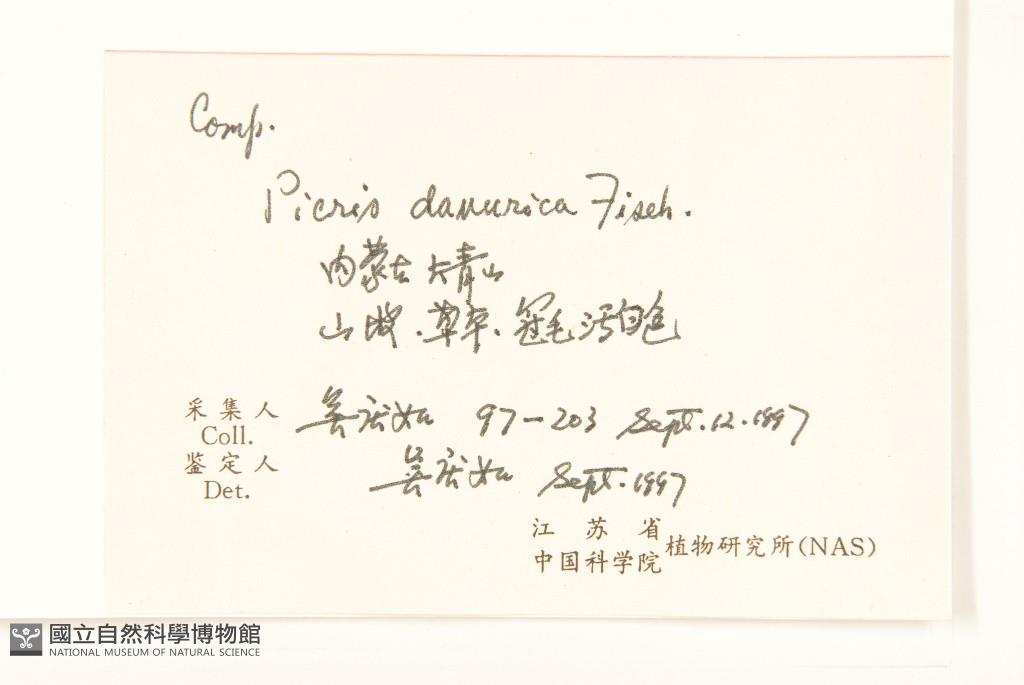 Comp.
Picris davurica Fisch.
内蒙古大青山
山坡.草本.冠毛污白色
采集人 吴庆如 97-203 Sept.12.1997
Coll.
鉴定人 吴庆如 Sept.1997
Det.
江苏省
中国科学院 植物研究所(NAS)
國立自然科學博物館
NATIONAL MUSEUM OF NATURAL SCIENCE